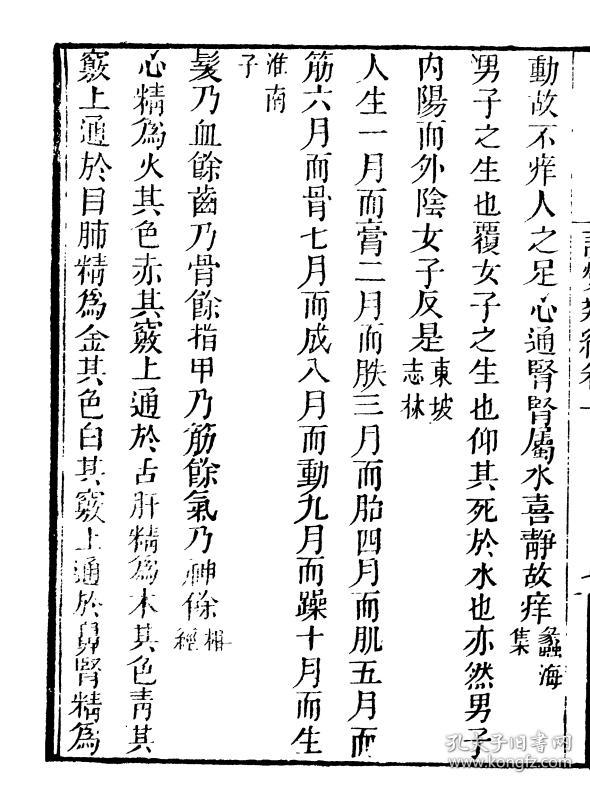 動故不痒人之足心通腎腎屬水喜靜故痒蠡海集
男子之生也覆女子之生也仰其死於水也亦然男子
內陽而外陰女子反是東坡志林
人生一月而膏二月而胅三月而胎四月而肌五月而
筋六月而骨七月而成八月而動九月而躁十月而生
淮南子
髮乃血餘齒乃骨餘指甲乃筋餘氣乃神餘
心精為火其色赤其竅上通於舌肝精為木其色青其
竅上通於目肺精為金其色白其竅上通於鼻腎精為
孔夫子旧书网
www.kongfz.com